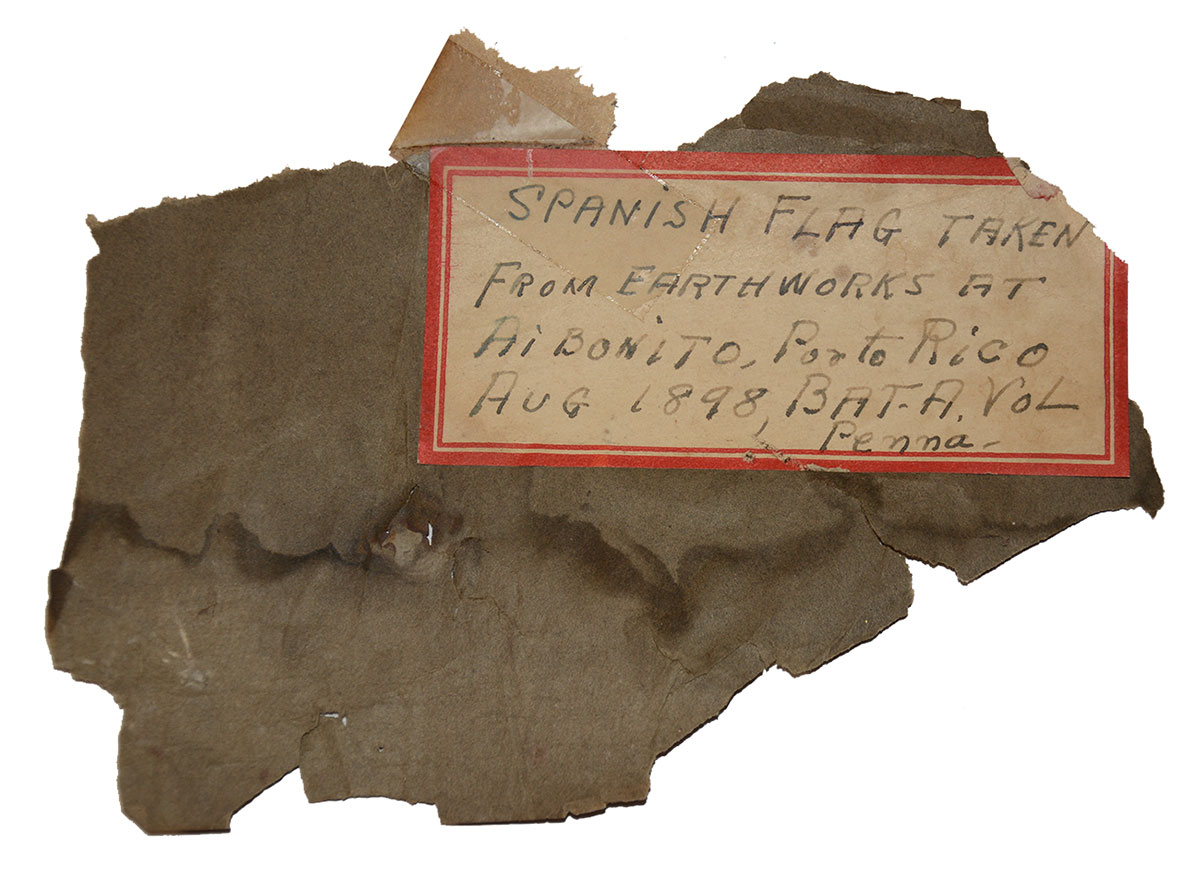 SPANISH FLAG TAKEN
FROM EARTHWORKS AT
AIBONITO, Porto Rico
AUG 1898, BAT-A, VOL
Penna-